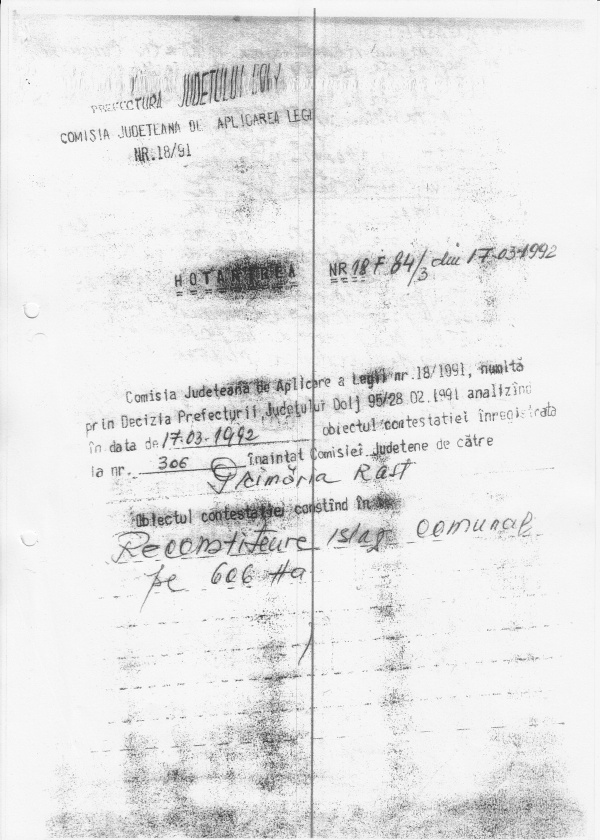 PREFECTURA JUDETULUI DOLJ
COMISIA JUDETEANA DE APLICAREA LEGI
NR.18/91
HOTARIREA NR 18 F 84/3 din 17-03-1992
Comisia Judeteana de Aplicare a Legii nr.18/1991, numită
prin Decizia Prefecturii Judeţului Dolj 95/28.02.1991 analizînd
în data de 17.03.1992 obiectul contestatiei înregistrata
la nr. 306 înaintat Comisiei Judetene de către
Primăria Rast
Obiectul contestaţiei constînd în
Reconstituire islaz comunal
pe 606 Ha